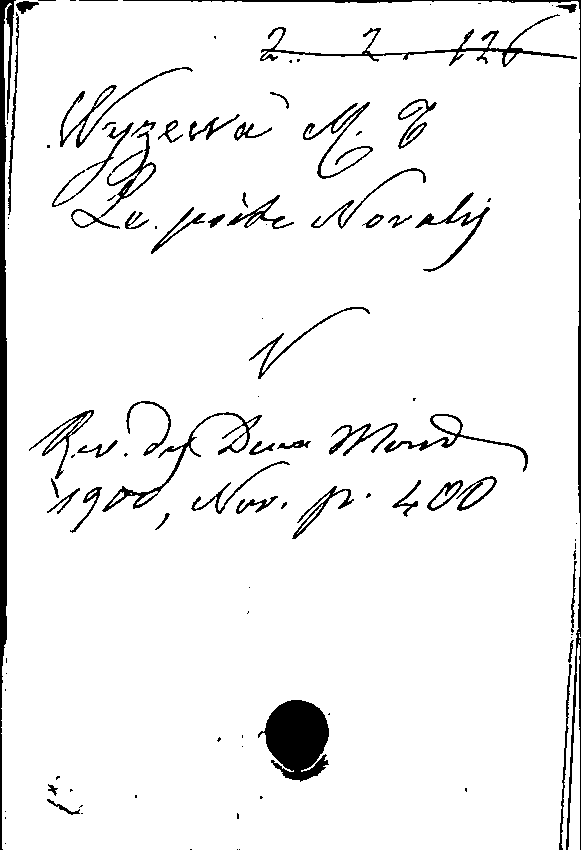 2.. 2. 126
Wyzewa M. T
Le poète Novalis
V
Rev. des Deux Mond
1900, Nov. p. 400